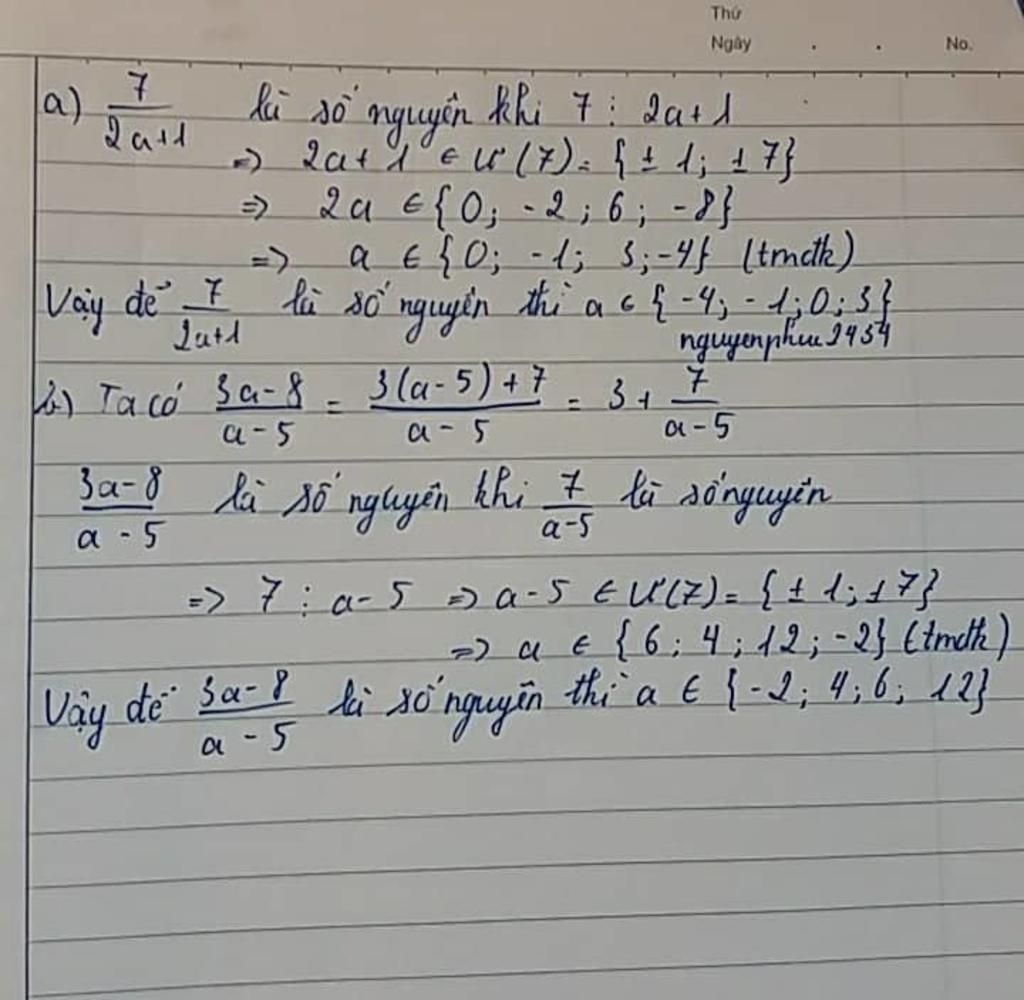 Thứ
Ngày . . No.
a) 7/(2a+1) là số nguyên khi 7 ⋮ 2a+1
=> 2a+1 ∈ Ư(7) = {±1; ±7}
=> 2a ∈ {0; -2; 6; -8}
=> a ∈ {0; -1; 3; -4} (tmđk)
Vậy để 7/(2a+1) là số nguyên thì a ∈ {-4; -1; 0; 3}
nguyenphuc2454
b) Ta có (3a-8)/(a-5) = (3(a-5)+7)/(a-5) = 3 + 7/(a-5)
(3a-8)/(a-5) là số nguyên khi 7/(a-5) là số nguyên
=> 7 ⋮ a-5 => a-5 ∈ Ư(7) = {±1; ±7}
=> a ∈ {6; 4; 12; -2} (tmđk)
Vậy để (3a-8)/(a-5) là số nguyên thì a ∈ {-2; 4; 6; 12}